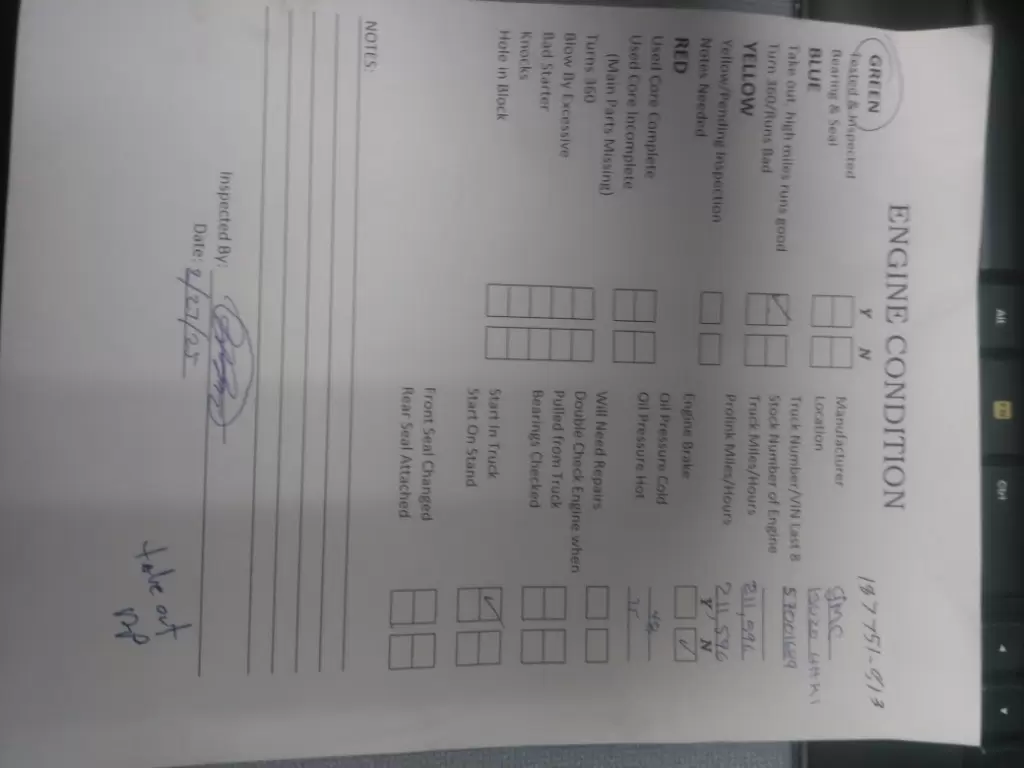 187751-913
ENGINE CONDITION
GREEN
Tested & Inspected
Bearing & Seal
BLUE
Take out, high miles runs good
Turn 360/Runs Bad
YELLOW
Yellow/Pending Inspection
Notes Needed
RED
Used Core Complete
Used Core Incomplete
(Main Parts Missing)
Turns 360
Blow By Excessive
Bad Starter
Knocks
Hole in Block
Y N
Manufacturer GMC
Location
Truck Number/VIN Last 8
Stock Number of Engine
Truck Miles/Hours
Prolink Miles/Hours 211,596
Y N
Engine Brake
Oil Pressure Cold
Oil Pressure Hot
Will Need Repairs
Double Check Engine when
Pulled from Truck
Bearings Checked
Start In Truck
Start On Stand
Front Seal Changed
Rear Seal Attached
NOTES:
Inspected By:
Date: 2/27/25
take out
Alt
Car
▲
▼